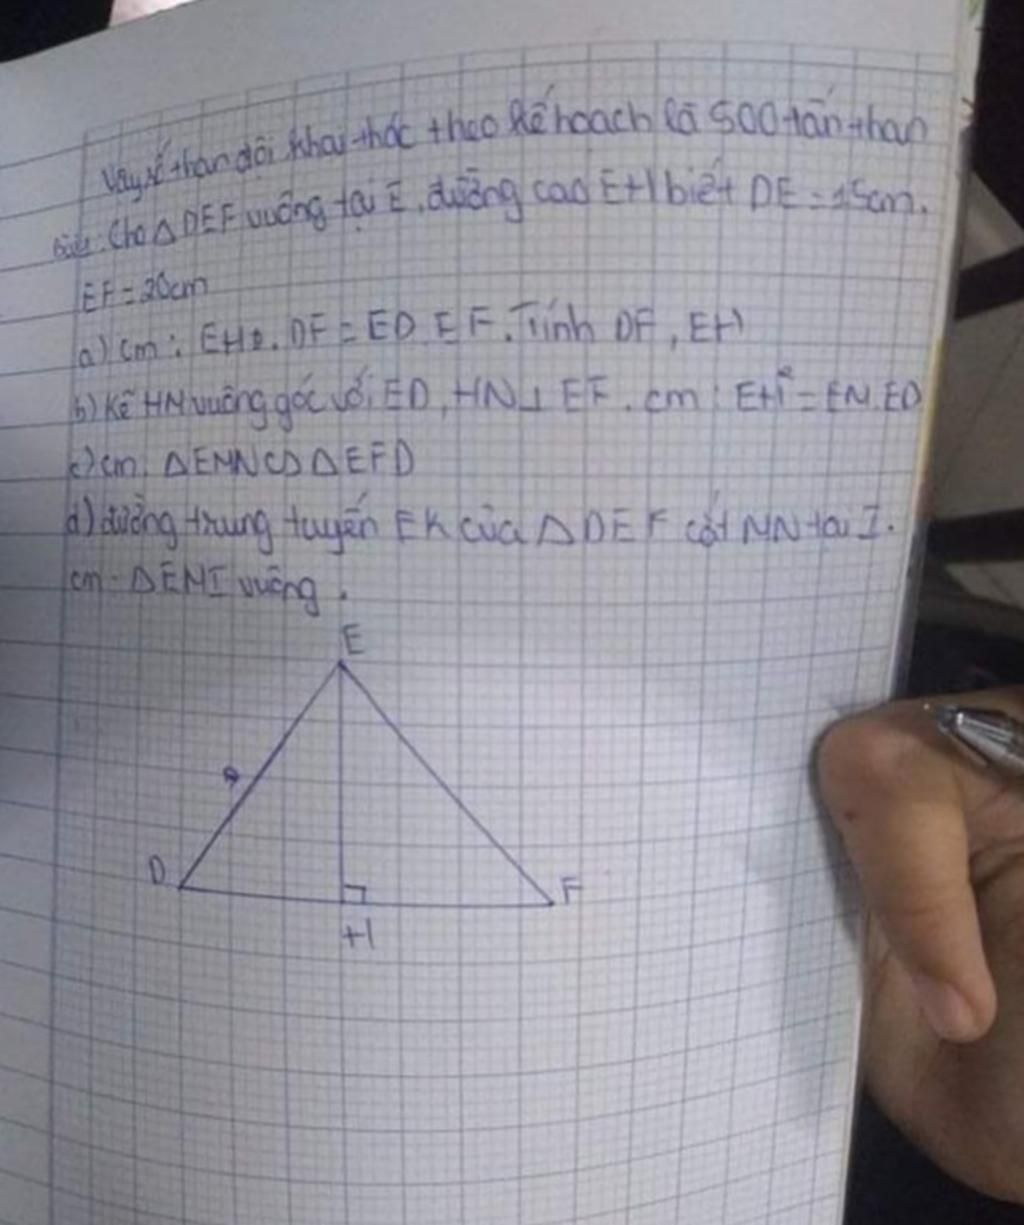 Vậy số than đội khai thác theo kế hoạch là 500 tấn than
Bài: Cho △DEF vuông tại E, đường cao EH biết DE = 15cm.
EF = 20cm
a) cm: EH. DF = ED. EF. Tính DF, EH
b) Kẻ HM vuông góc với ED, HN ⊥ EF. cm: EH² = EM.ED
c) cm: △EMN ∽ △EFD
d) đường trung tuyến EK của △DEF cắt MN tại I.
cm: △EMI vuông.
E
D
F
H